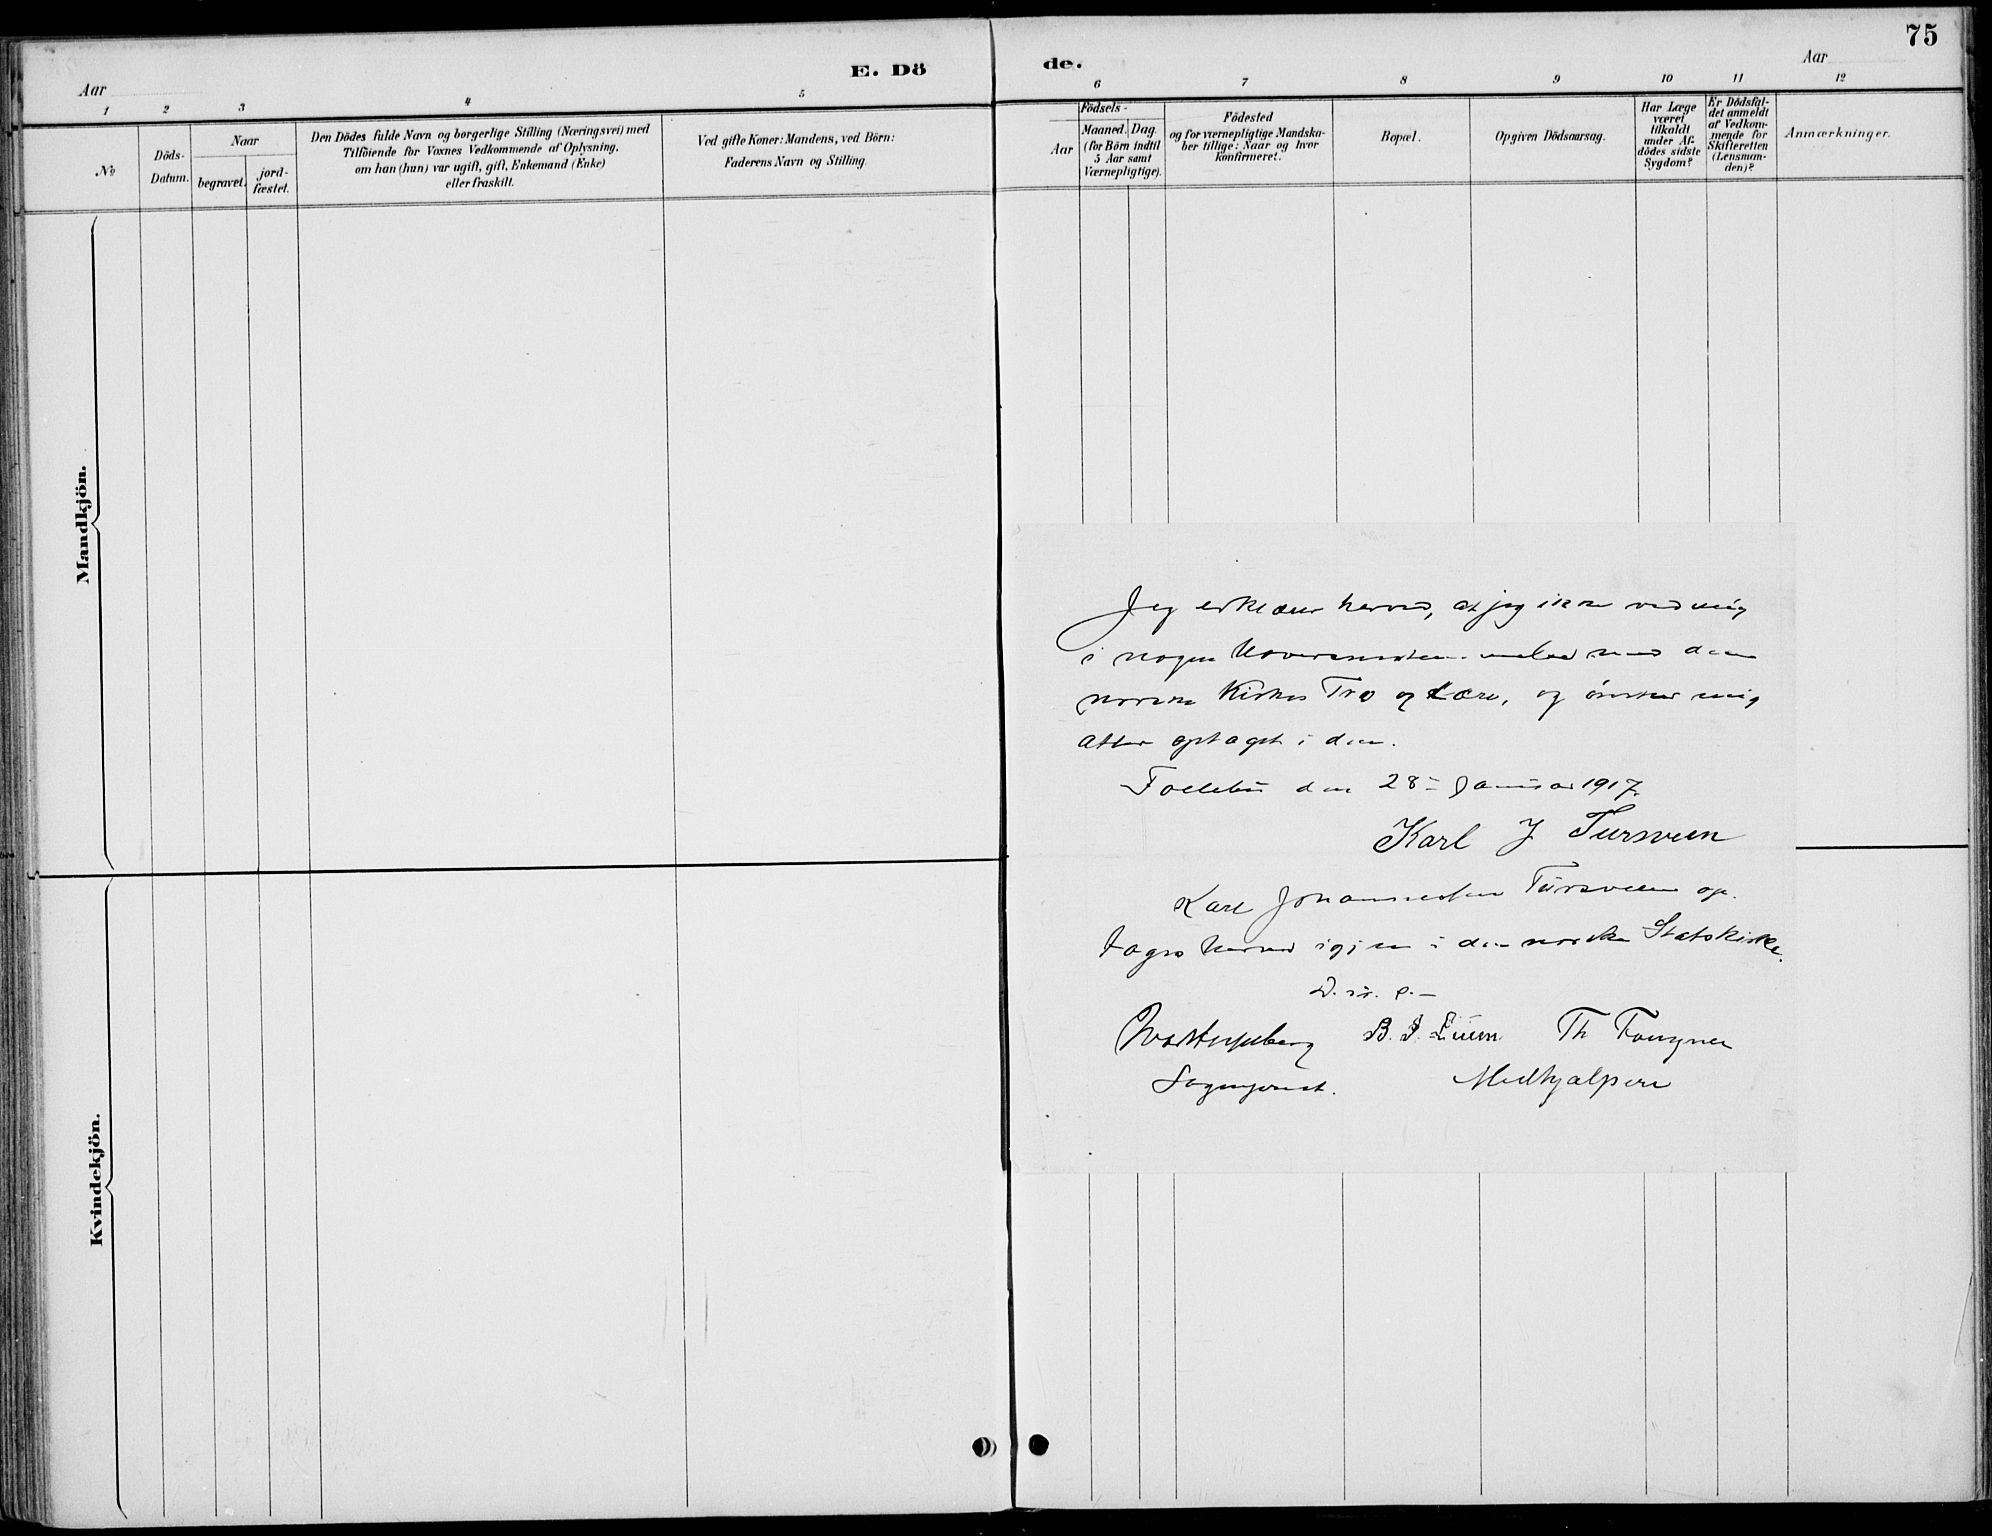 75
E. Dö
de.
Aar
Aar
1 2 3 4 5
6 7 8 9 10 11 12
№
Döds-
Datum.
Naar
begravet.
jord-
fæstet.
Den Dödes fulde Navn og borgerlige Stilling (Næringsvei) med
Tilföiende for Voxnes Vedkommende af Oplysning,
om han (hun) var ugift, gift, Enkemand (Enke)
eller fraskilt.
Ved gifte Koner: Mandens, ved Börn:
Faderens Navn og Stilling.
Födsels-
Aar
Maaned. Dag.
(for Börn indtil
5 Aar samt
Værnepligtige).
Födested
og for værnepligtige Mandska-
ber tillige: Naar og hvor
konfirmeret.
Bopæl.
Opgiven Dödsaarsag.
Har Læge
været
tilkaldt
under Af-
dödes sidste
Sygdom?
Er Dödsfal-
det anmeldt
af Vedkom-
mende for
Skifteretten
(Lensman-
den)?
Anmærkninger.
Mandkjön.
Kvindekjön.
Jeg erklærer herved, at jeg ikke ved mig
i nogen Uoverensstemmelse med den
norske Kirkes Tro og Lære, og ønsker mig
atter optaget i den.
Follebu den 28 Januar 1917.
Karl J Tursveen
Karl Johannessen Tursveen op-
tages herved igjen i den norske Statskirke.
D. u. s.
B. J. Luen Th Fougner
Sogneprest. Medhjælpere